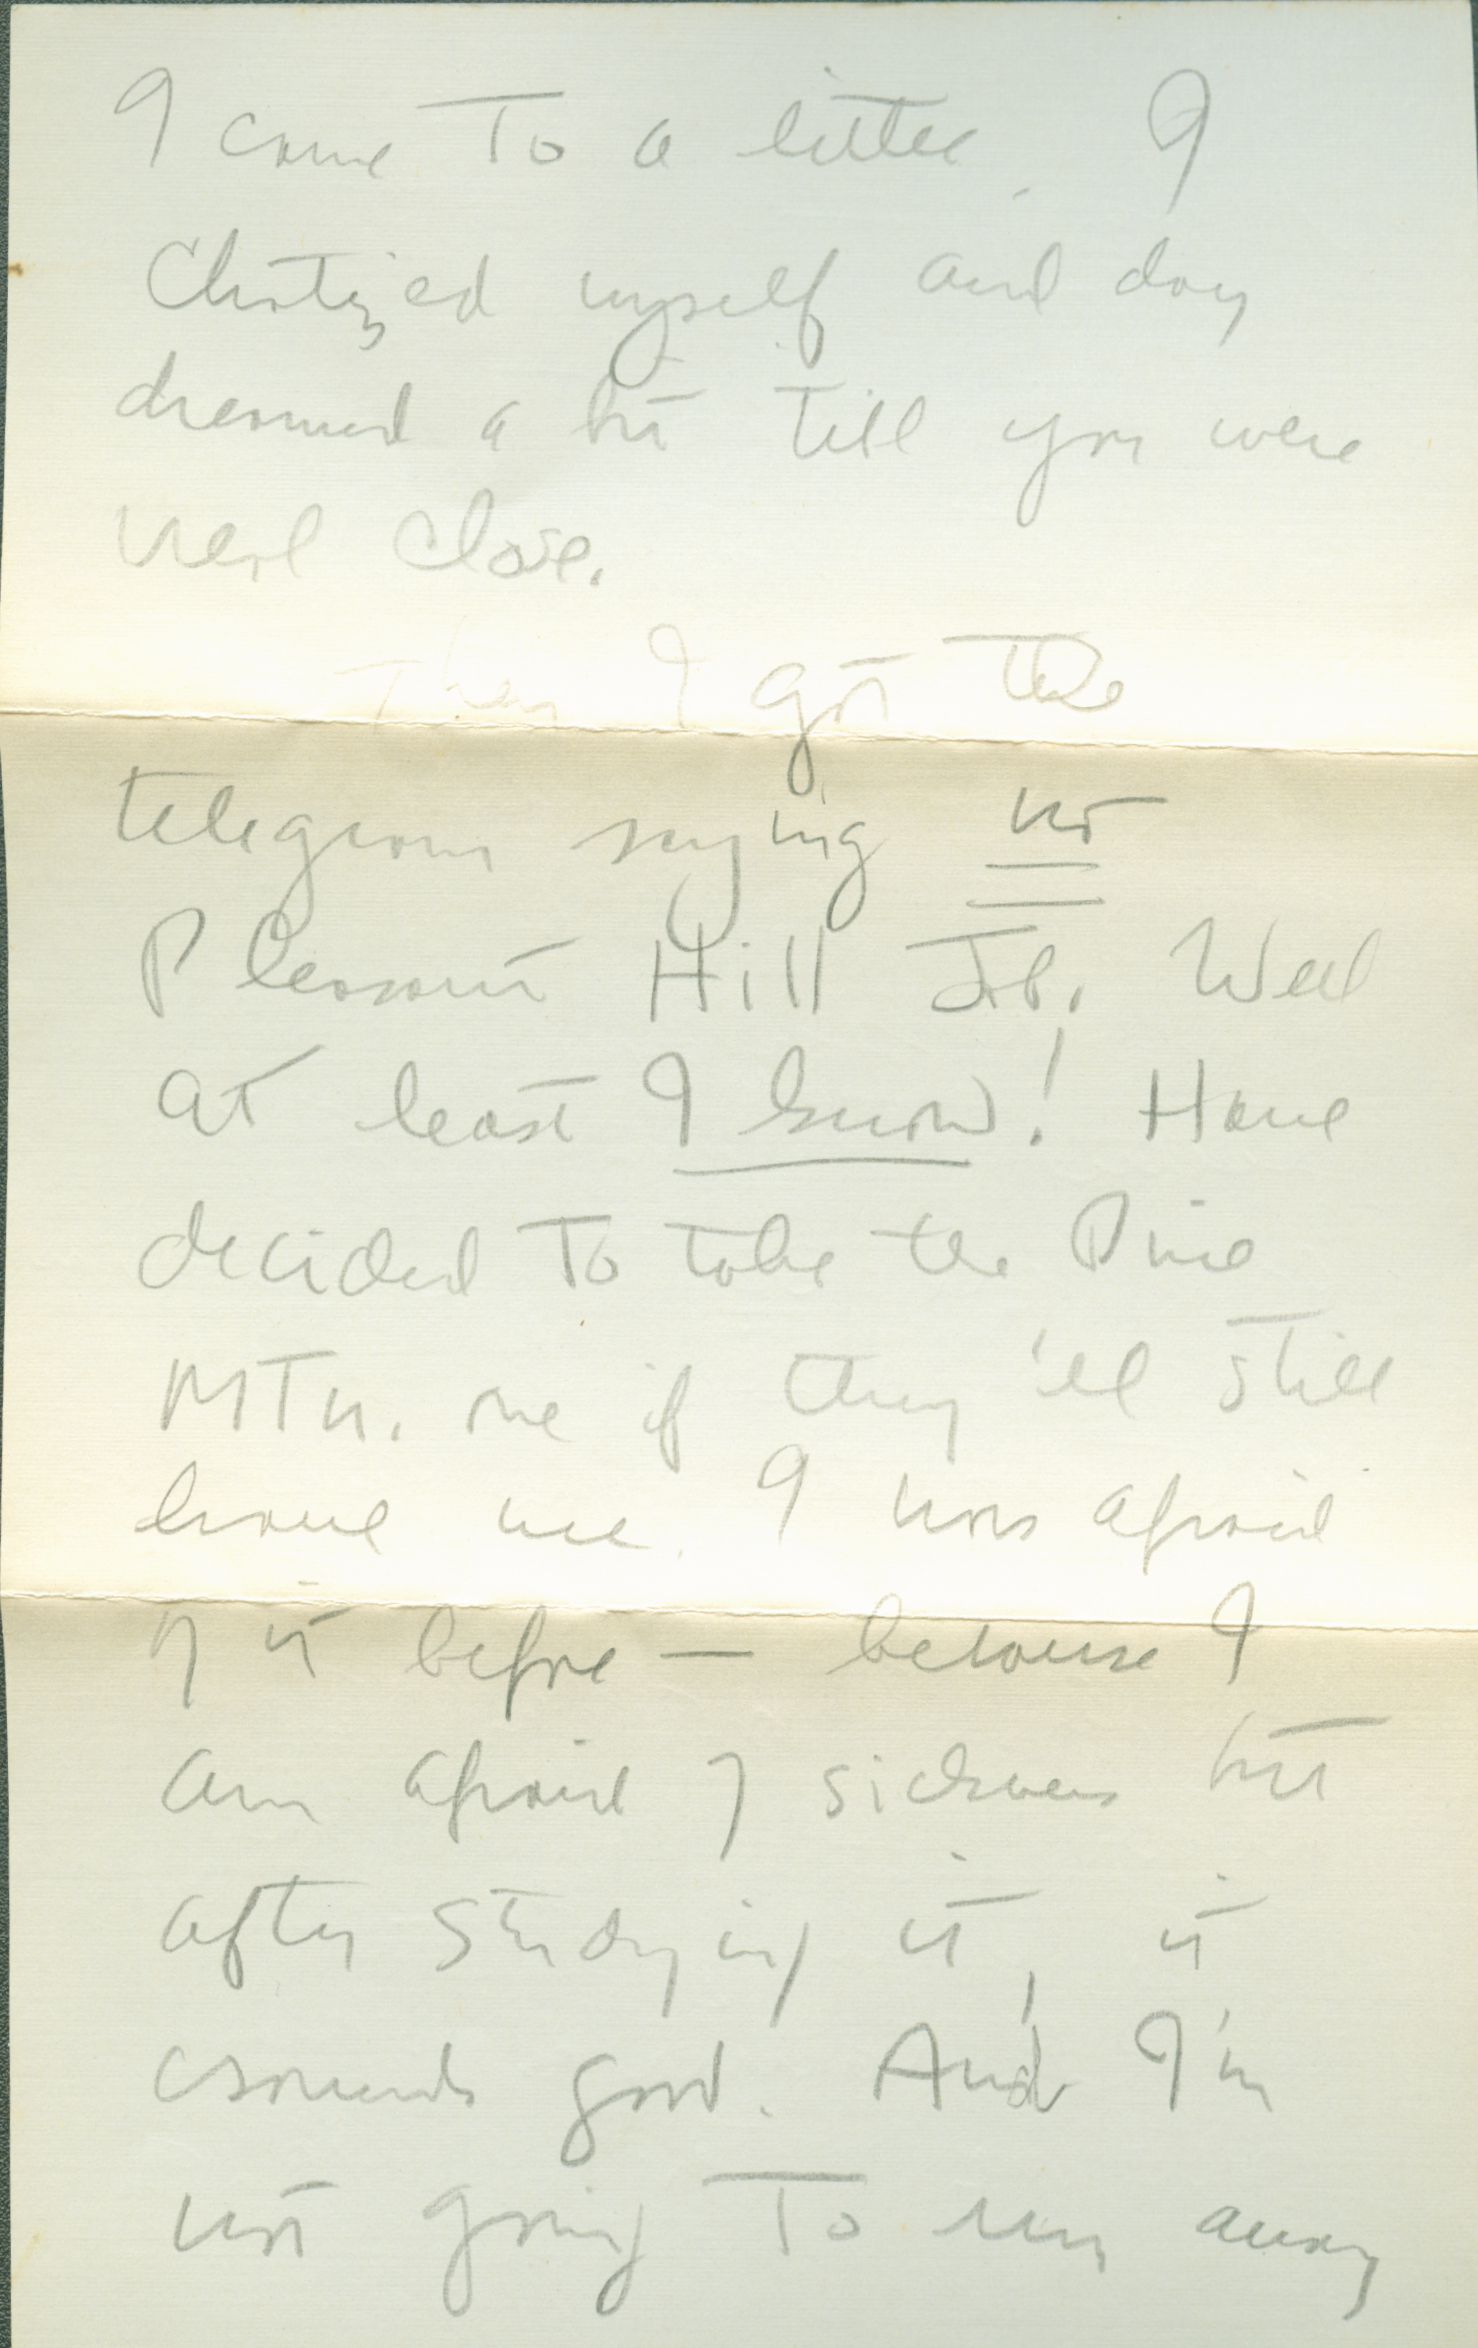 I come to a little. I
myself and day
dreamed a bit till you were
real close.
Then I got the
telegram saying no
Pleasant Hill Job. Well
at least I know! Have
decided to take the Pine
Mtn. one if they'll still
have me. I was afraid
of it before — because I
am afraid of sickness but
after studying it, it
sounds good. And I'm
not going to run away